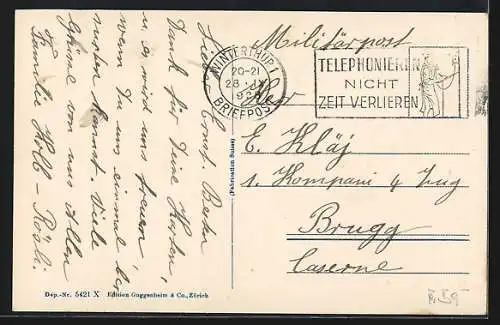 Militärpost
WINTERTHUR 1
20-21
BRIEFPOST
TELEPHONIEREN
NICHT
ZEIT VERLIEREN
Herr
E. Kläj
1. Kompani 4 Zug
Brugg
Caserne
Lieber Ernst. Besten
Dank für Deine Karten,
u es wird uns freuen
wenn Du uns einmal be,
suchen kannst. Viele
Grüsse von uns Allen
Familie Kolb-Rösli.
(Fabrication Suisse)
Dép.-Nr. 5421 X Edition Guggenheim & Co., Zürich